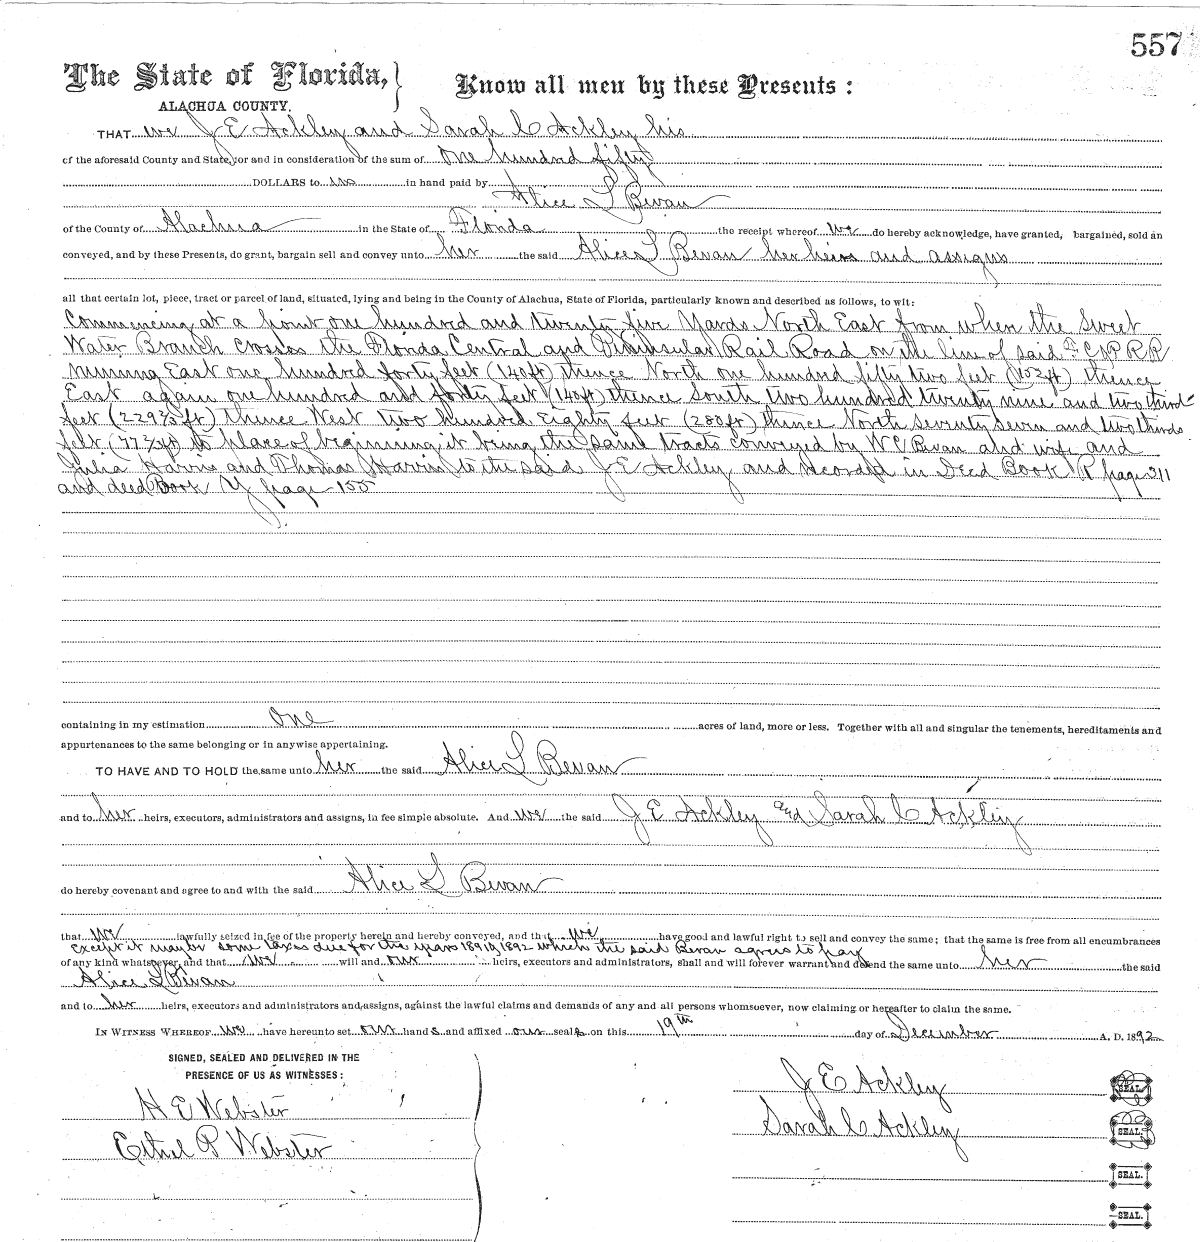 557
The State of Florida, Know all men by these Presents :
ALACHUA COUNTY.
THAT we J E Ackley and Sarah C Ackley his
of the aforesaid County and State, for and in consideration of the sum of One hundred fifty
DOLLARS to us in hand paid by
Alice L Bevan
of the County of Alachua in the State of Florida the receipt whereof we do hereby acknowledge, have granted, bargained, sold an
conveyed, and by these Presents, do grant, bargain sell and convey unto her the said Alice L Bevan her heirs and assigns
all that certain lot, piece, tract or parcel of land, situated, lying and being in the County of Alachua, State of Florida, particularly known and described as follows, to wit:
Commencing at a point one hundred and twenty five Yards North East from when the Sweet
Water Branch crosses the Florida Central and Peninsular Rail Road on the line of said F C & P R R
running East one hundred forty feet (140ft) thence North one hundred fifty two feet (152ft) thence
East again one hundred and forty feet (140ft) thence South two hundred twenty nine and two third
feet (229⅔ft) thence West two hundred Eighty feet (280ft) thence North seventy seven and two thirds
feet (77⅔ft) to place of beginning it being the same tracts conveyed by W E Bevan and wife and
Julia Harris and Thomas Harris to the said J E Ackley and recorded in Deed Book R page 311
and deed Book Y page 155
containing in my estimation One acres of land, more or less. Together with all and singular the tenements, hereditaments and
appurtenances to the same belonging or in anywise appertaining.
TO HAVE AND TO HOLD the same unto her the said Alice L Bevan
and to her heirs, executors, administrators and assigns, in fee simple absolute. And we the said J E Ackley and Sarah C Ackley
do hereby covenant and agree to and with the said Alice L Bevan
that we lawfully seized in fee of the property herein and hereby conveyed, and that we have good and lawful right to sell and convey the same; that the same is free from all encumbrances
except it may be some taxes due for the years 1891, 1892 which the said Bevan agrees to pay
of any kind whatsoever, and that we will and our heirs, executors and administrators, shall and will forever warrant and defend the same unto her the said
Alice L Bevan
and to her heirs, executors and administrators and assigns, against the lawful claims and demands of any and all persons whomsoever, now claiming or hereafter to claim the same.
IN WITNESS WHEREOF we have hereunto set our hand s and affixed our seal s on this 19th day of December A. D. 1892
SIGNED, SEALED AND DELIVERED IN THE
PRESENCE OF US AS WITNESSES :
H E Webster
Ethel P Webster
J E Ackley SEAL.
Sarah C Ackley SEAL.
SEAL.
SEAL.